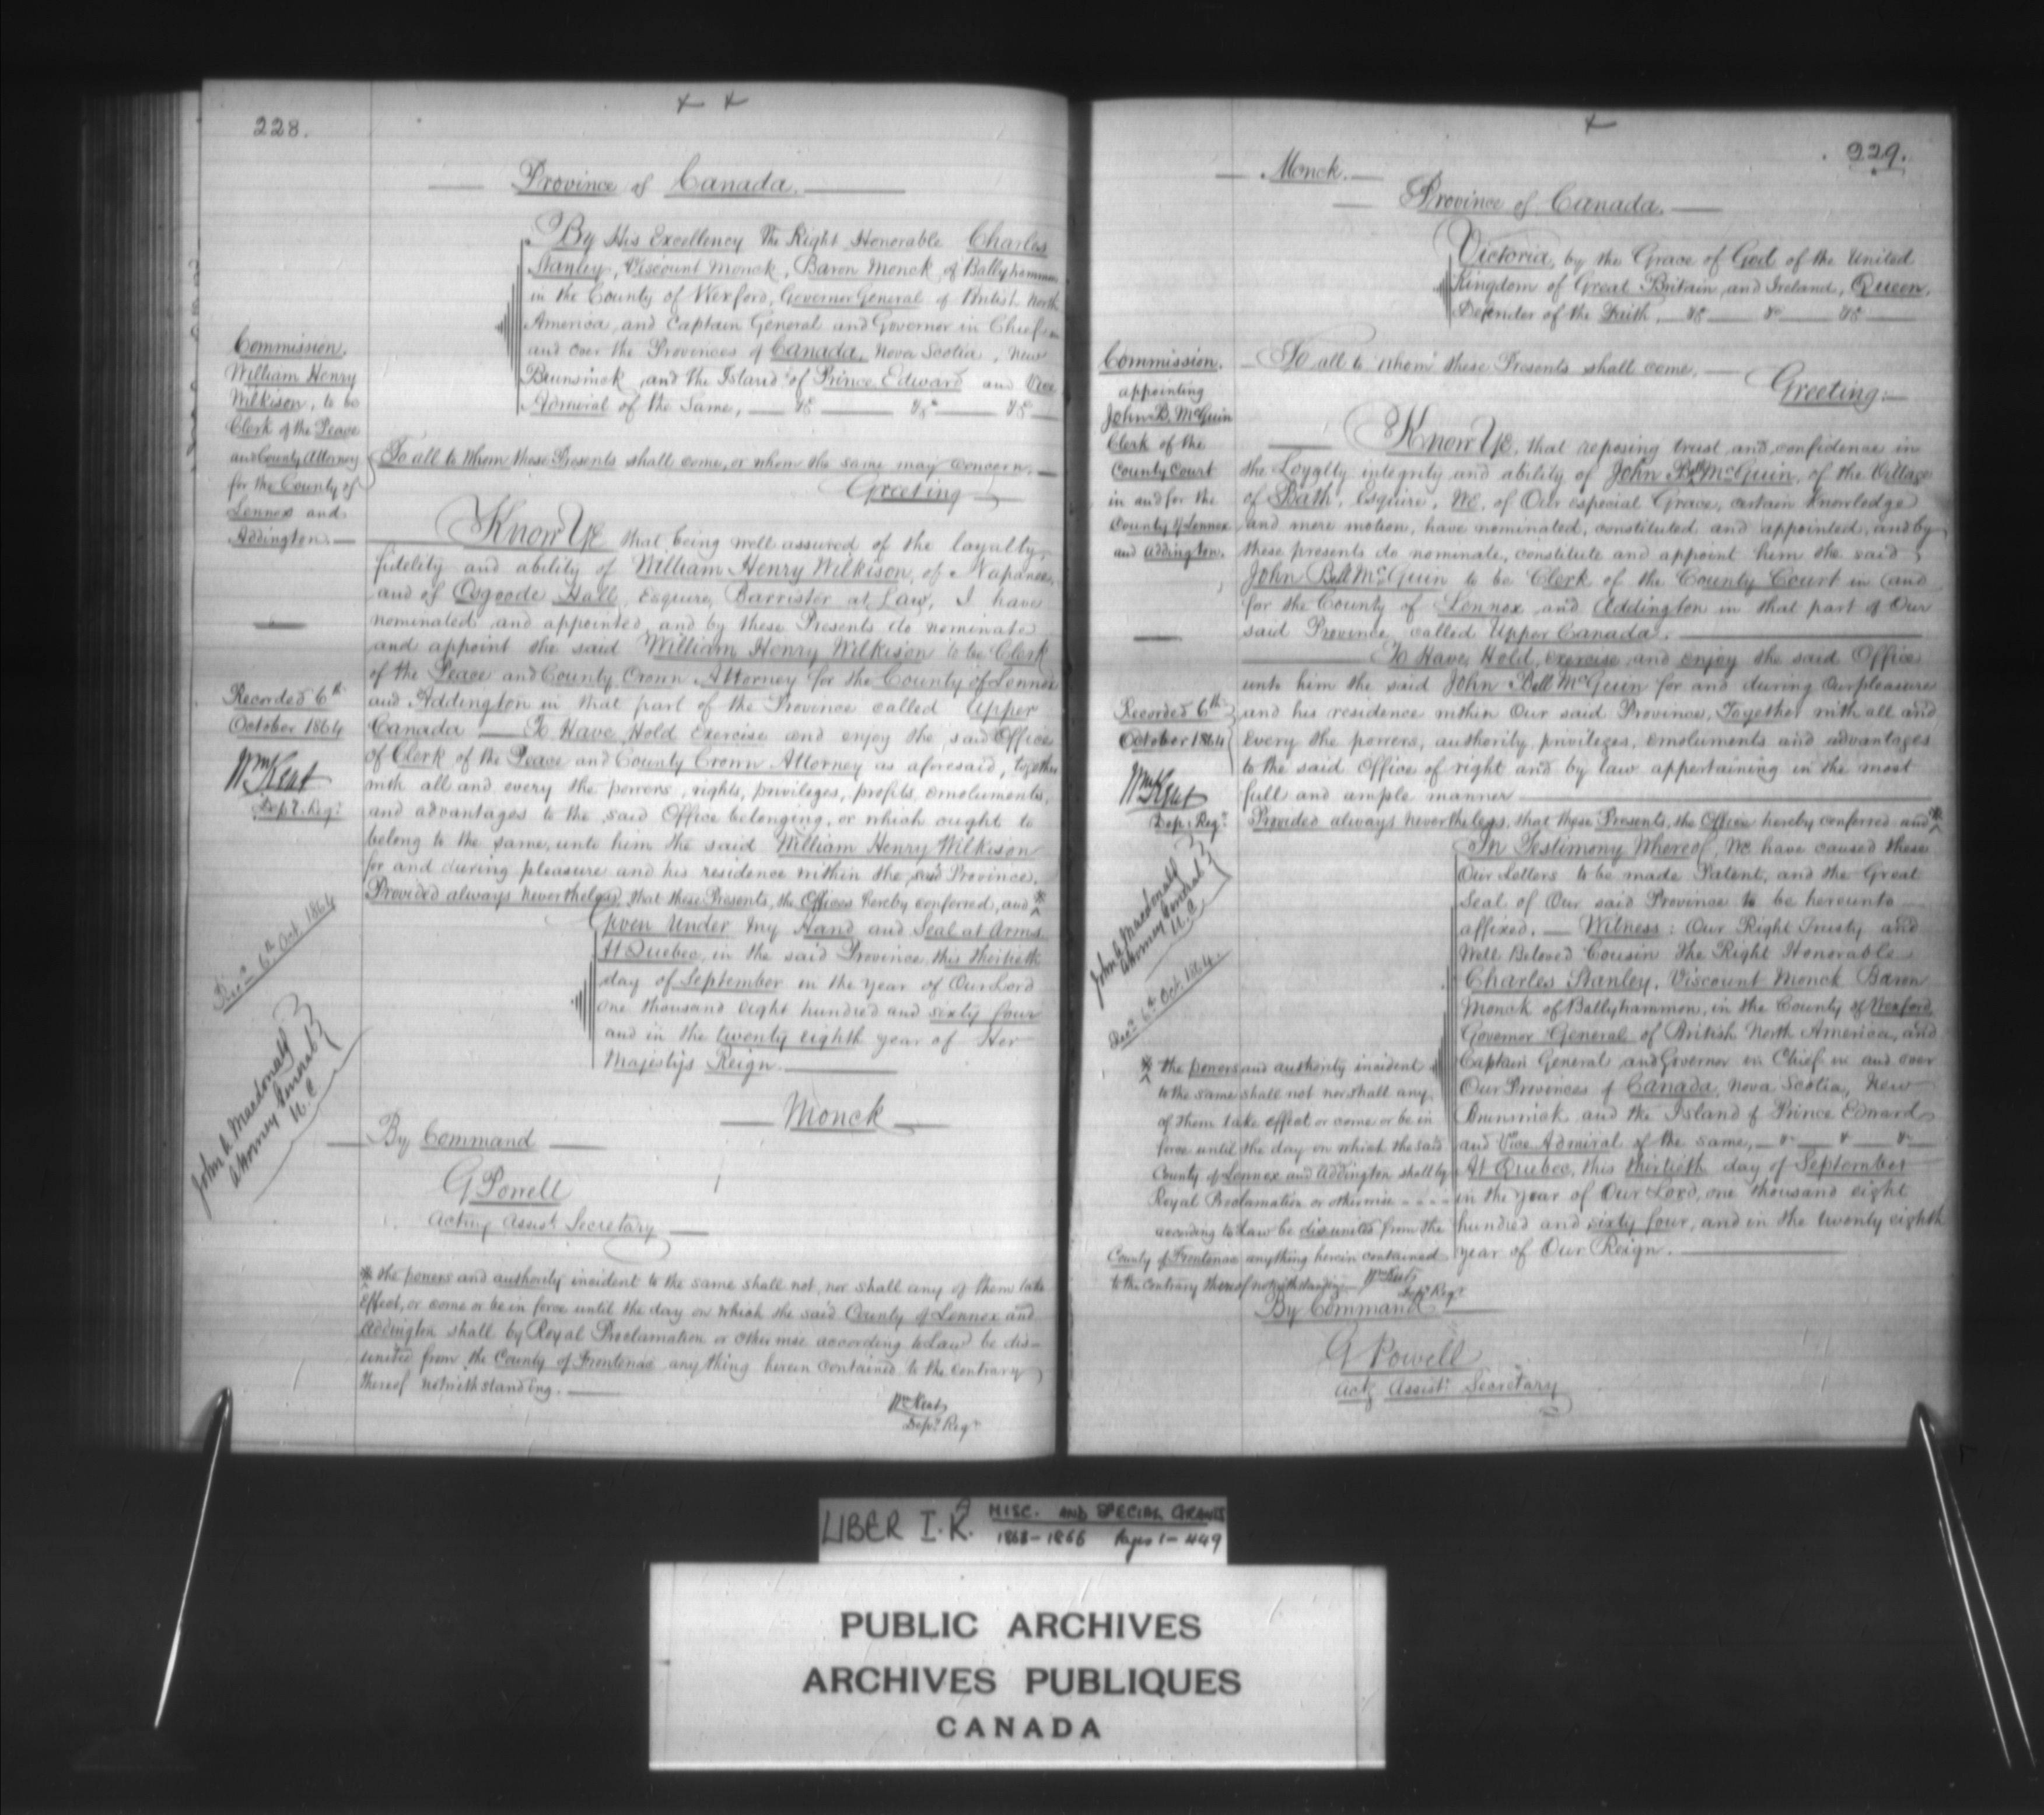 228.
Province of Canada.
By His Excellency The Right Honorable Charles
Stanley, Viscount Monck, Baron Monck of Ballytrammon
in the County of Wexford, Governor General of British North
America, and Captain General and Governor in Chief in
and over the Provinces of Canada, Nova Scotia, New
Brunswick, and the Island of Prince Edward and Vice
Admiral of the Same, &c &c &c
Commission.
William Henry
Wilkison, to be
Clerk of the Peace
and County Attorney
for the County of
Lennox and
Addington.
To all to Whom these Presents shall come, or whom the same may concern.
Greeting
Know Ye that being well assured of the loyalty,
fidelity and ability of William Henry Wilkison, of Napanee,
and of Osgoode Hall, Esquire, Barrister at Law, I have
nominated and appointed and by these Presents do nominate
and appoint the said William Henry Wilkison to be Clerk
of the Peace and County Crown Attorney for the County of Lennox
and Addington in that part of the Province called Upper
Canada To Have Hold Exercise and enjoy the said Office
of Clerk of the Peace and County Crown Attorney as aforesaid, together
with all and every the powers, rights, privileges, profits, emoluments,
and advantages to the said Office belonging, or which ought to
belong to the same, unto him the said William Henry Wilkison
for and during pleasure and his residence within the said Province.
Provided always nevertheless, that these Presents, the Offices hereby conferred, and *
Recorded 6th
October 1864
Wm Kent
Depy. Regr.
Given Under My Hand and Seal at Arms
At Quebec, in the said Province, this thirtieth
day of September in the year of Our Lord
one thousand eight hundred and sixty four
and in the twenty eighth year of Her
Majesty's Reign.
Monck
Recd. 6th Oct. 1864
John A. Macdonald
Attorney General
U.C.
By Command
G Powell
Acting Assist. Secretary
* the powers and authority incident to the same shall not, nor shall any of them take
Effect, or come or be in force until the day on which the said County of Lennox and
Addington shall by Royal Proclamation or otherwise according to Law be dis-
united from the County of Frontenac any thing herein contained to the contrary
thereof notwithstanding.
Wm Kent
Depy. Regr.
229.
Monck.
Province of Canada.
Victoria, by the Grace of God of the United
Kingdom of Great Britain, and Ireland, Queen,
Defender of the Faith, &c &c &c
To all to whom these Presents shall come,
Greeting:
Commission.
appointing
John B. McGuin
Clerk of the
County Court
in and for the
County of Lennox
and Addington.
Know Ye, that reposing trust and confidence in
the Loyalty integrity and ability of John Bell McGuin, of the Village
of Bath, Esquire, We, of Our especial Grace, certain knowledge
and mere motion, have nominated, constituted and appointed, and by
these presents do nominate, constitute and appoint him the said
John Bell McGuin to be Clerk of the County Court in and
for the County of Lennox and Addington in that part of Our
said Province called Upper Canada.
To Have, Hold, exercise and enjoy the said Office
unto him the said John Bell McGuin for and during Our pleasure
and his residence within Our said Province, Together with all and
every the powers, authority, privileges, emoluments and advantages
to the said Office of right and by law appertaining in the most
full and ample manner
Provided always nevertheless, that these Presents, the Office hereby conferred and *
Recorded 6th
October 1864
Wm Kent
Dep. Regr.
John A. Macdonald
Attorney General
U.C.
Recd. 6th Oct. 1864.
In Testimony Whereof, We have caused these
Our Letters to be made Patent, and the Great
Seal of Our said Province to be hereunto
affixed. Witness: Our Right Trusty and
Well Beloved Cousin The Right Honorable
Charles Stanley, Viscount Monck Baron
Monck of Ballytrammon, in the County of Wexford
Governor General of British North America, and
Captain General and Governor in Chief in and over
Our Provinces of Canada, Nova Scotia, New
Brunswick and the Island of Prince Edward
and Vice Admiral of the same, &c & &c
At Quebec, this thirtieth day of September
in the year of Our Lord, one thousand eight
hundred and sixty four, and in the twenty eighth
year of Our Reign.
* the powers and authority incident
to the same shall not nor shall any
of them take effect or come or be in
force until the day on which the said
County of Lennox and Addington shall by
Royal Proclamation or otherwise
according to Law be disunited from the
County of Frontenac anything herein contained
to the contrary thereof notwithstanding.
Wm Kent
Depy Regr.
By Command
G Powell
Actg Assist. Secretary
LIBER I.K.A
MISC. AND SPECIAL GRANTS
1863-1866 Pages 1-449
PUBLIC ARCHIVES
ARCHIVES PUBLIQUES
CANADA